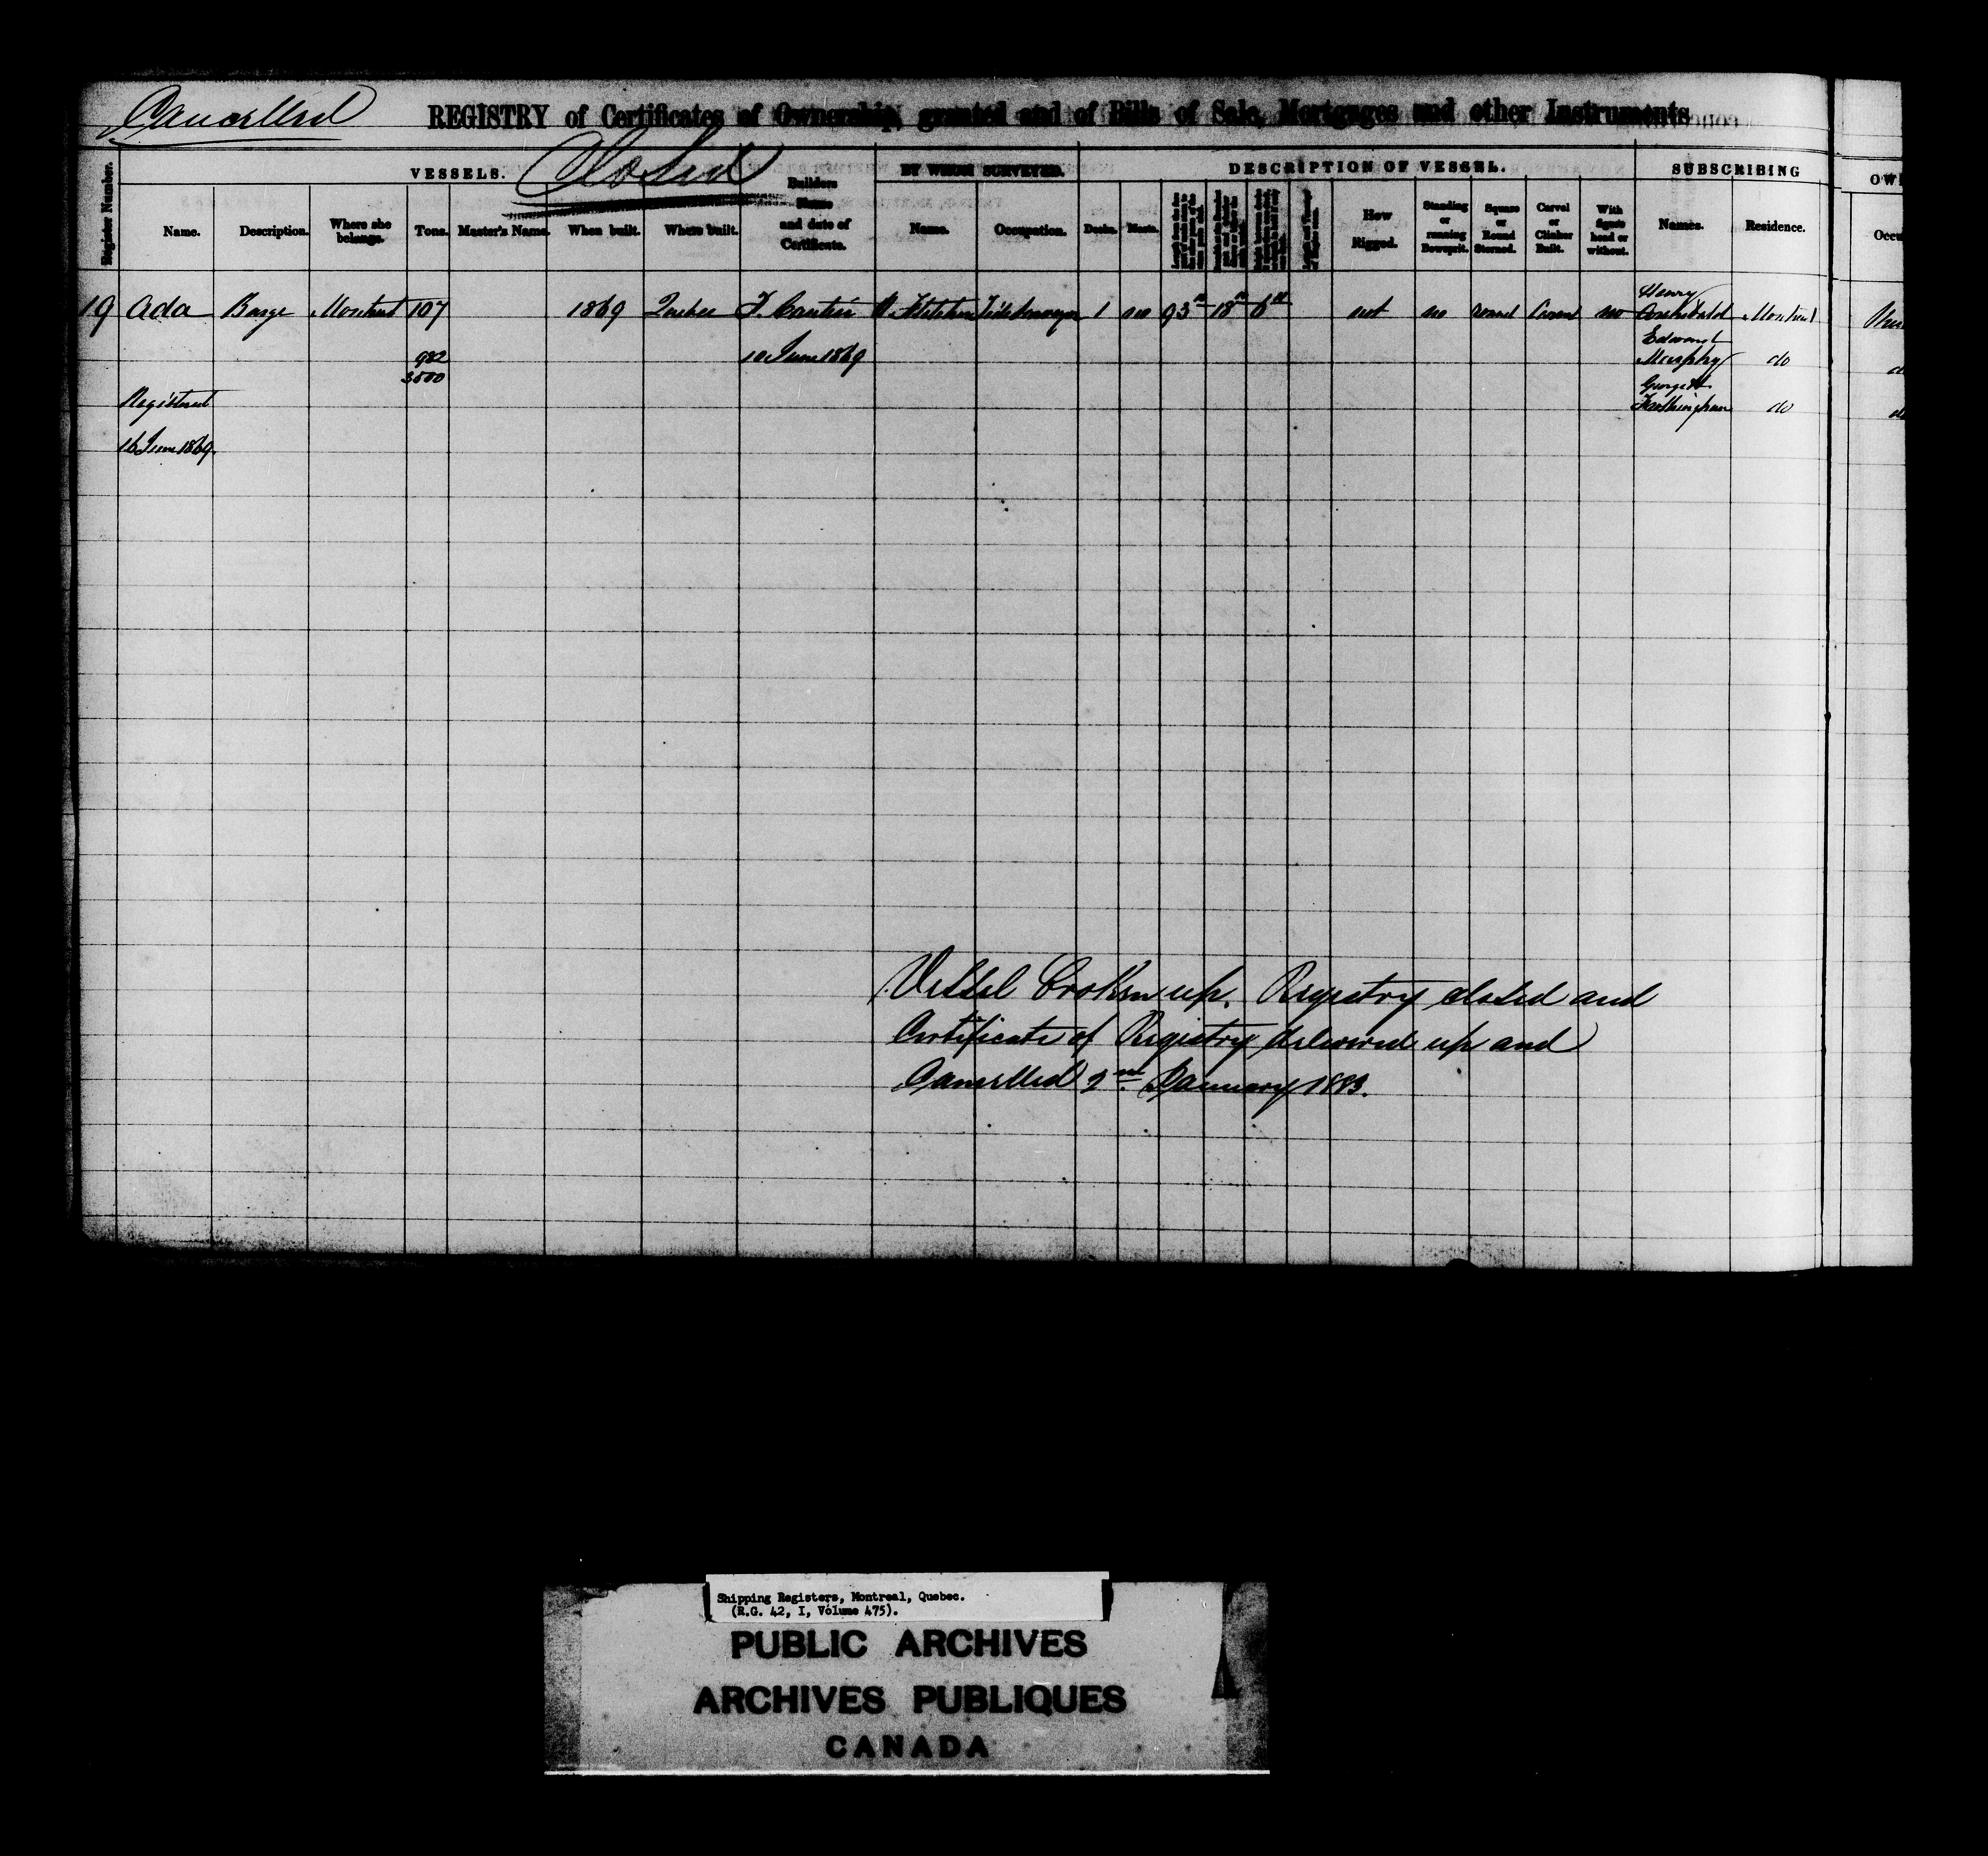 Cancelled
REGISTRY of Certificates of Ownership, granted and of Bills of Sale, Mortgages and other Instruments
Closed
Register Number.
VESSELS.
BY WHOM SURVEYED.
DESCRIPTION OF VESSEL.
SUBSCRIBING
OW
Name.
Description.
Where she belongs.
Tons.
Master's Name.
When built.
Where built.
Builders Name and date of Certificate.
Name.
Occupation.
Decks.
Masts.
How Rigged.
Standing or running Bowsprit.
Square or Round Sterned.
Carvel or Clinker Built.
With figure head or without.
Names.
Residence.
Occu
19 Ada Barge Montreal 107 1869 Quebec F. Cantin Tide Surveyor 1 no 93 18 6 not no round Carvel no Henry Archibald Montreal
982
3500
10 June 1869
Edward Murphy do
Registered
George H Frothingham do
16 June 1869.
Vessel broken up. Registry closed and
Certificate of Registry delivered up and
Cancelled 2nd January 1883.
Shipping Registers, Montreal, Quebec.
(R.G. 42, I, Volume 475).
PUBLIC ARCHIVES
ARCHIVES PUBLIQUES
CANADA